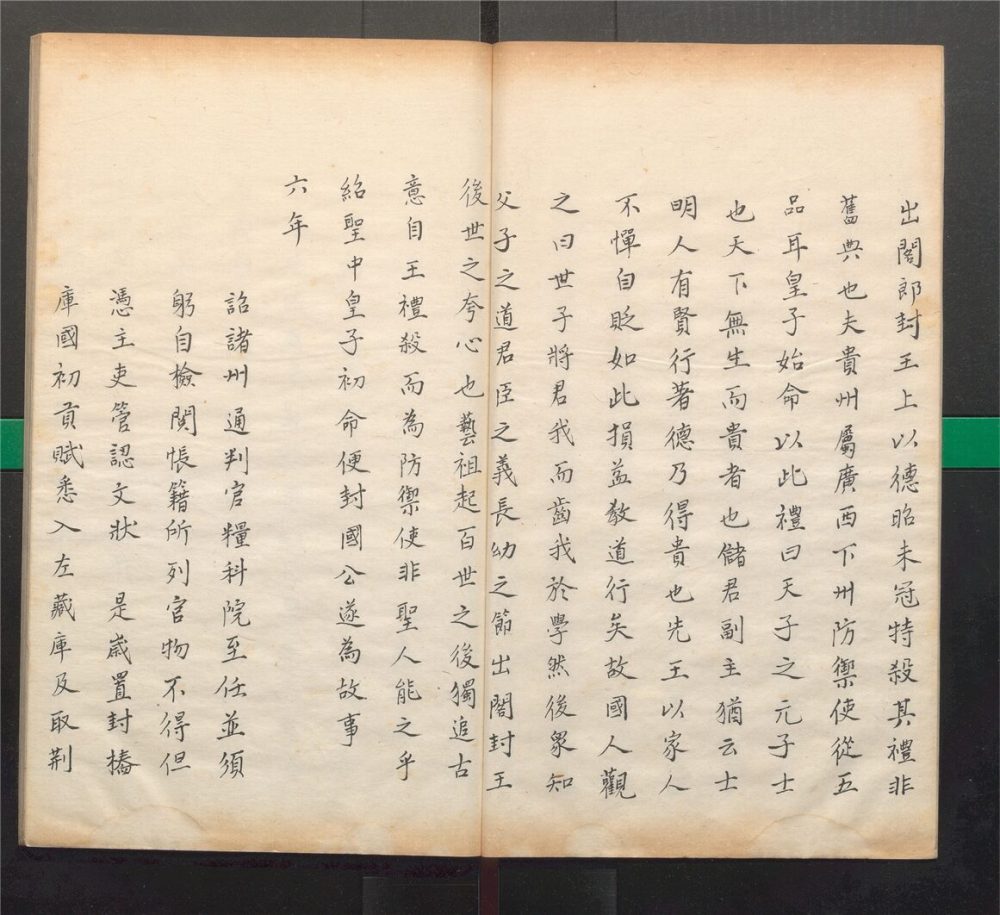 出閣郎封王上以德昭未冠特殺其禮非
舊典也夫貴州屬廣西下州防禦使從五
品耳皇子始命以此禮曰天子之元子士
也天下無生而貴者也儲君副主猶云士
明人有賢行著德乃得貴也先王以家人
不憚自貶如此損益教道行矣故國人觀
之曰世子將君我而齒我於學然後衆知
父子之道君臣之義長幼之節出閣封王
後世之夸心也藝祖起百世之後獨追古
意自王禮殺而為防禦使非聖人能之乎
紹聖中皇子初命便封國公遂為故事
六年
詔諸州通判官糧科院至任並須
躬自檢閱帳籍所列官物不得但
憑主吏管認文狀 是歲置封樁
庫國初貢賦悉入左藏庫及取荆